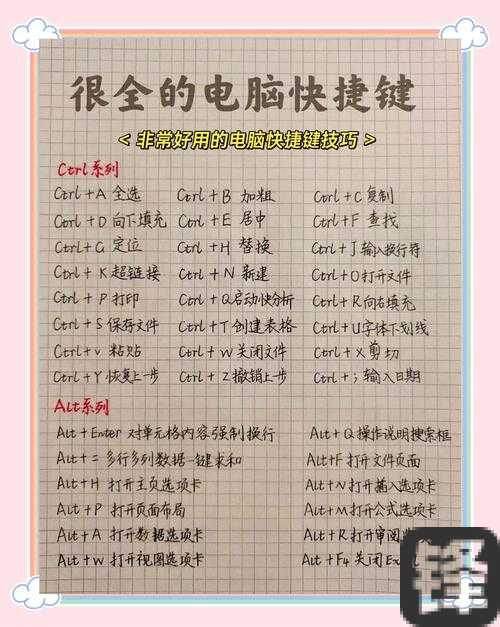 很全的电脑快捷键
< 非常好用的电脑快捷键技巧 >
Ctrl系列
Ctrl+A 全选 Ctrl+B 加粗 Ctrl+C 复制
Ctrl+D 向下填充 Ctrl+E 居中 Ctrl+F 查找
Ctrl+G 定位 Ctrl+H 替换 Ctrl+J 输入换行符
Ctrl+K 超链接 Ctrl+N 新建 Ctrl+O 打开文件
Ctrl+P 打印 Ctrl+Q 启动快分析 Ctrl+R 向右填充
Ctrl+S 保存文件 Ctrl+T 创建表格 Ctrl+U 字体下划线
Ctrl+v 粘贴 Ctrl+W 关闭文件 Ctrl+X 剪切
Ctrl+Y 恢复上一步 Ctrl+Z 撤销上步 Ctrl+; 输入日期
Alt系列
Alt+Enter 对单元格内容强制换行 Alt+Q 操作说明搜索框
Alt+= 多行多列数据一键求和 Alt+F 打开文件页面
Alt+H 打开主页选项卡 Alt+N 打开插入选项卡
Alt+P 打开页面布局 Alt+M 打开公式选项卡
Alt+A 打开数据选项卡 Alt+R 打开审阅
Alt+W 打开视图选项卡 Alt+F4 关闭
锋